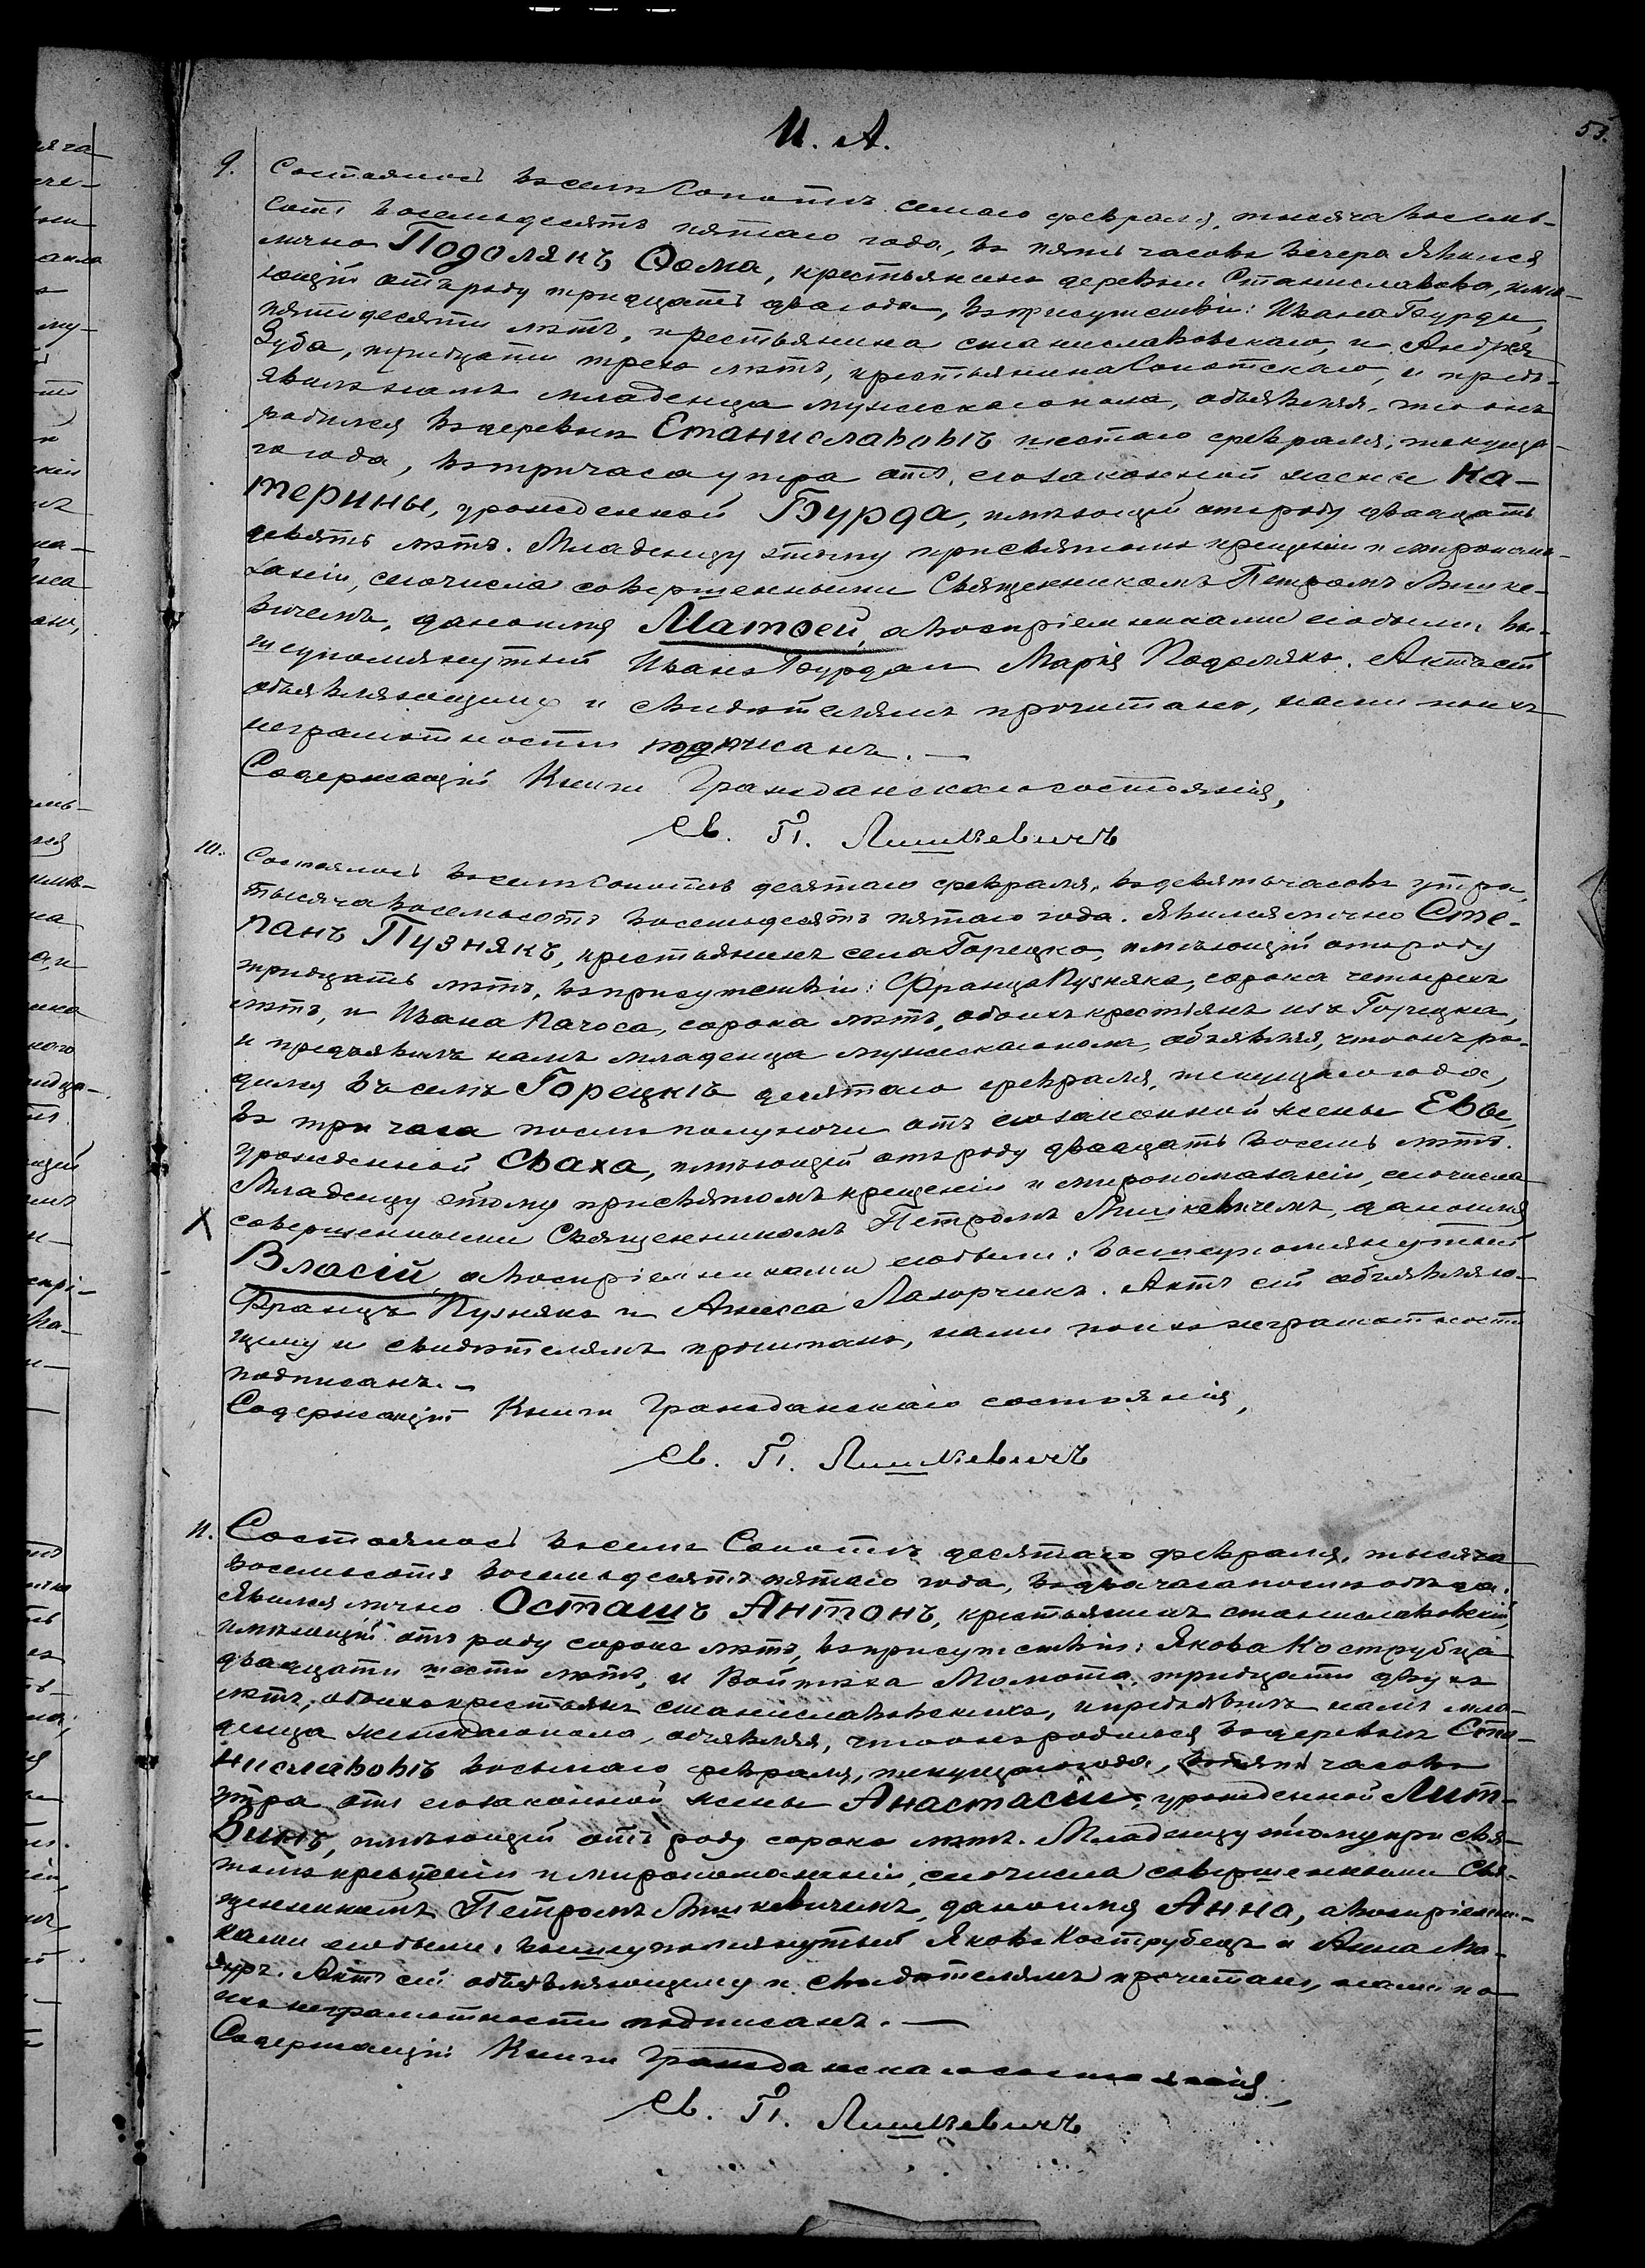 И. А.
53.
9. Состоялось въ селѣ Сопотѣ седьмаго февраля, тысяча восемь-
сотъ восемьдесятъ пятаго года, въ пять часовъ вечера. Явился
лично Подолякъ Ѳома, крестьянинъ деревни Станиславова, имѣ-
ющій отъ роду тридцать два года, въ присутствіи: Ивана Бурды,
пятидесяти лѣтъ, крестьянина станиславовскаго, и Андрея
Зуба, тридцати трехъ лѣтъ, крестьянина Сопотскаго, и предъ-
явилъ намъ младенца мужескаго пола, объявляя, что онъ
родился въ деревнѣ Станиславовѣ шестаго февраля, текуща-
го года, въ три часа утра отъ его законной жены Ка-
терины, урожденной Бурда, имѣющей отъ роду двадцать
девять лѣтъ. Младенцу этому при святомъ крещеніи и миропома-
заніи, сего числа совершенными Священникомъ Петромъ Лишке-
вичемъ, дано имя Матѳей, а воспріемниками его были: вы-
шеупомянутый Иванъ Бурда и Марія Подолякъ. Актъ сей
объявляющему и свидѣтелямъ прочитанъ, нами по ихъ
неграмотности подписанъ. —
Содержащій Книги Гражданскаго состоянія,
Св. П. Лишкевичъ
10. Состоялось въ селѣ Сопотѣ десятаго февраля, въ девять часовъ утра,
тысяча восемьсотъ восемьдесятъ пятаго года. Явился лично Сте-
панъ Пузнякъ, крестьянинъ села Горецко, имѣющій отъ роду
тридцать лѣтъ, въ присутствіи: Франца Пузняка, сорока четырехъ
лѣтъ, и Ивана Пачоса, сорока лѣтъ, обоихъ крестьянъ изъ Горецка,
и предъявилъ намъ младенца мужескаго пола, объявляя, что онъ ро-
дился въ селѣ Горецкѣ десятаго февраля, текущаго года,
въ три часа послѣ полуночи отъ его законной жены Евы,
урожденной Сваха, имѣющей отъ роду двадцать восемь лѣтъ.
Младенцу этому при святомъ крещеніи и миропомазаніи, сего числа
X совершенными Священникомъ Петромъ Лишкевичемъ, дано имя
Власій, а воспріемниками его были: вышеупомянутый
Францъ Пузнякъ и Анесса Лазорчикъ. Актъ сей объявляю-
щему и свидѣтелямъ прочитанъ, нами по ихъ неграмотности
подписанъ. —
Содержащій Книги Гражданскаго состоянія,
Св. П. Лишкевичъ
11. Состоялось въ селѣ Сопотѣ десятаго февраля, тысяча
восемьсотъ восемьдесятъ пятаго года, въ два часа по полюдни.
Явился лично Осташъ Антонъ, крестьянинъ станиславовскій,
имѣющій отъ роду сорокъ лѣтъ, въ присутствіи: Якова Кострубца
двадцати шести лѣтъ, и Войтѣха Момота, тридцати двухъ
лѣтъ, обоихъ крестьянъ станиславовскихъ, и предъявилъ намъ мла-
денца женскаго пола, объявляя, что онъ родился въ деревнѣ Ста-
ниславовѣ восьмаго февраля, текущаго года, въ пять часовъ
утра отъ его законной жены Анастасіи, урожденной Лит-
винъ, имѣющей отъ роду сорокъ лѣтъ. Младенцу этому при свя-
томъ крещеніи и миропомазаніи, сего числа совершенными Свя-
щенникомъ Петромъ Лишкевичемъ, дано имя Анна, а воспріемни-
ками его были: вышеупомянутый Яковъ Кострубецъ и Анна Ма-
зуръ. Актъ сей объявляющему и свидѣтелямъ прочитанъ, нами по
ихъ неграмотности подписанъ. —
Содержащій Книги Гражданскаго состоянія,
Св. П. Лишкевичъ